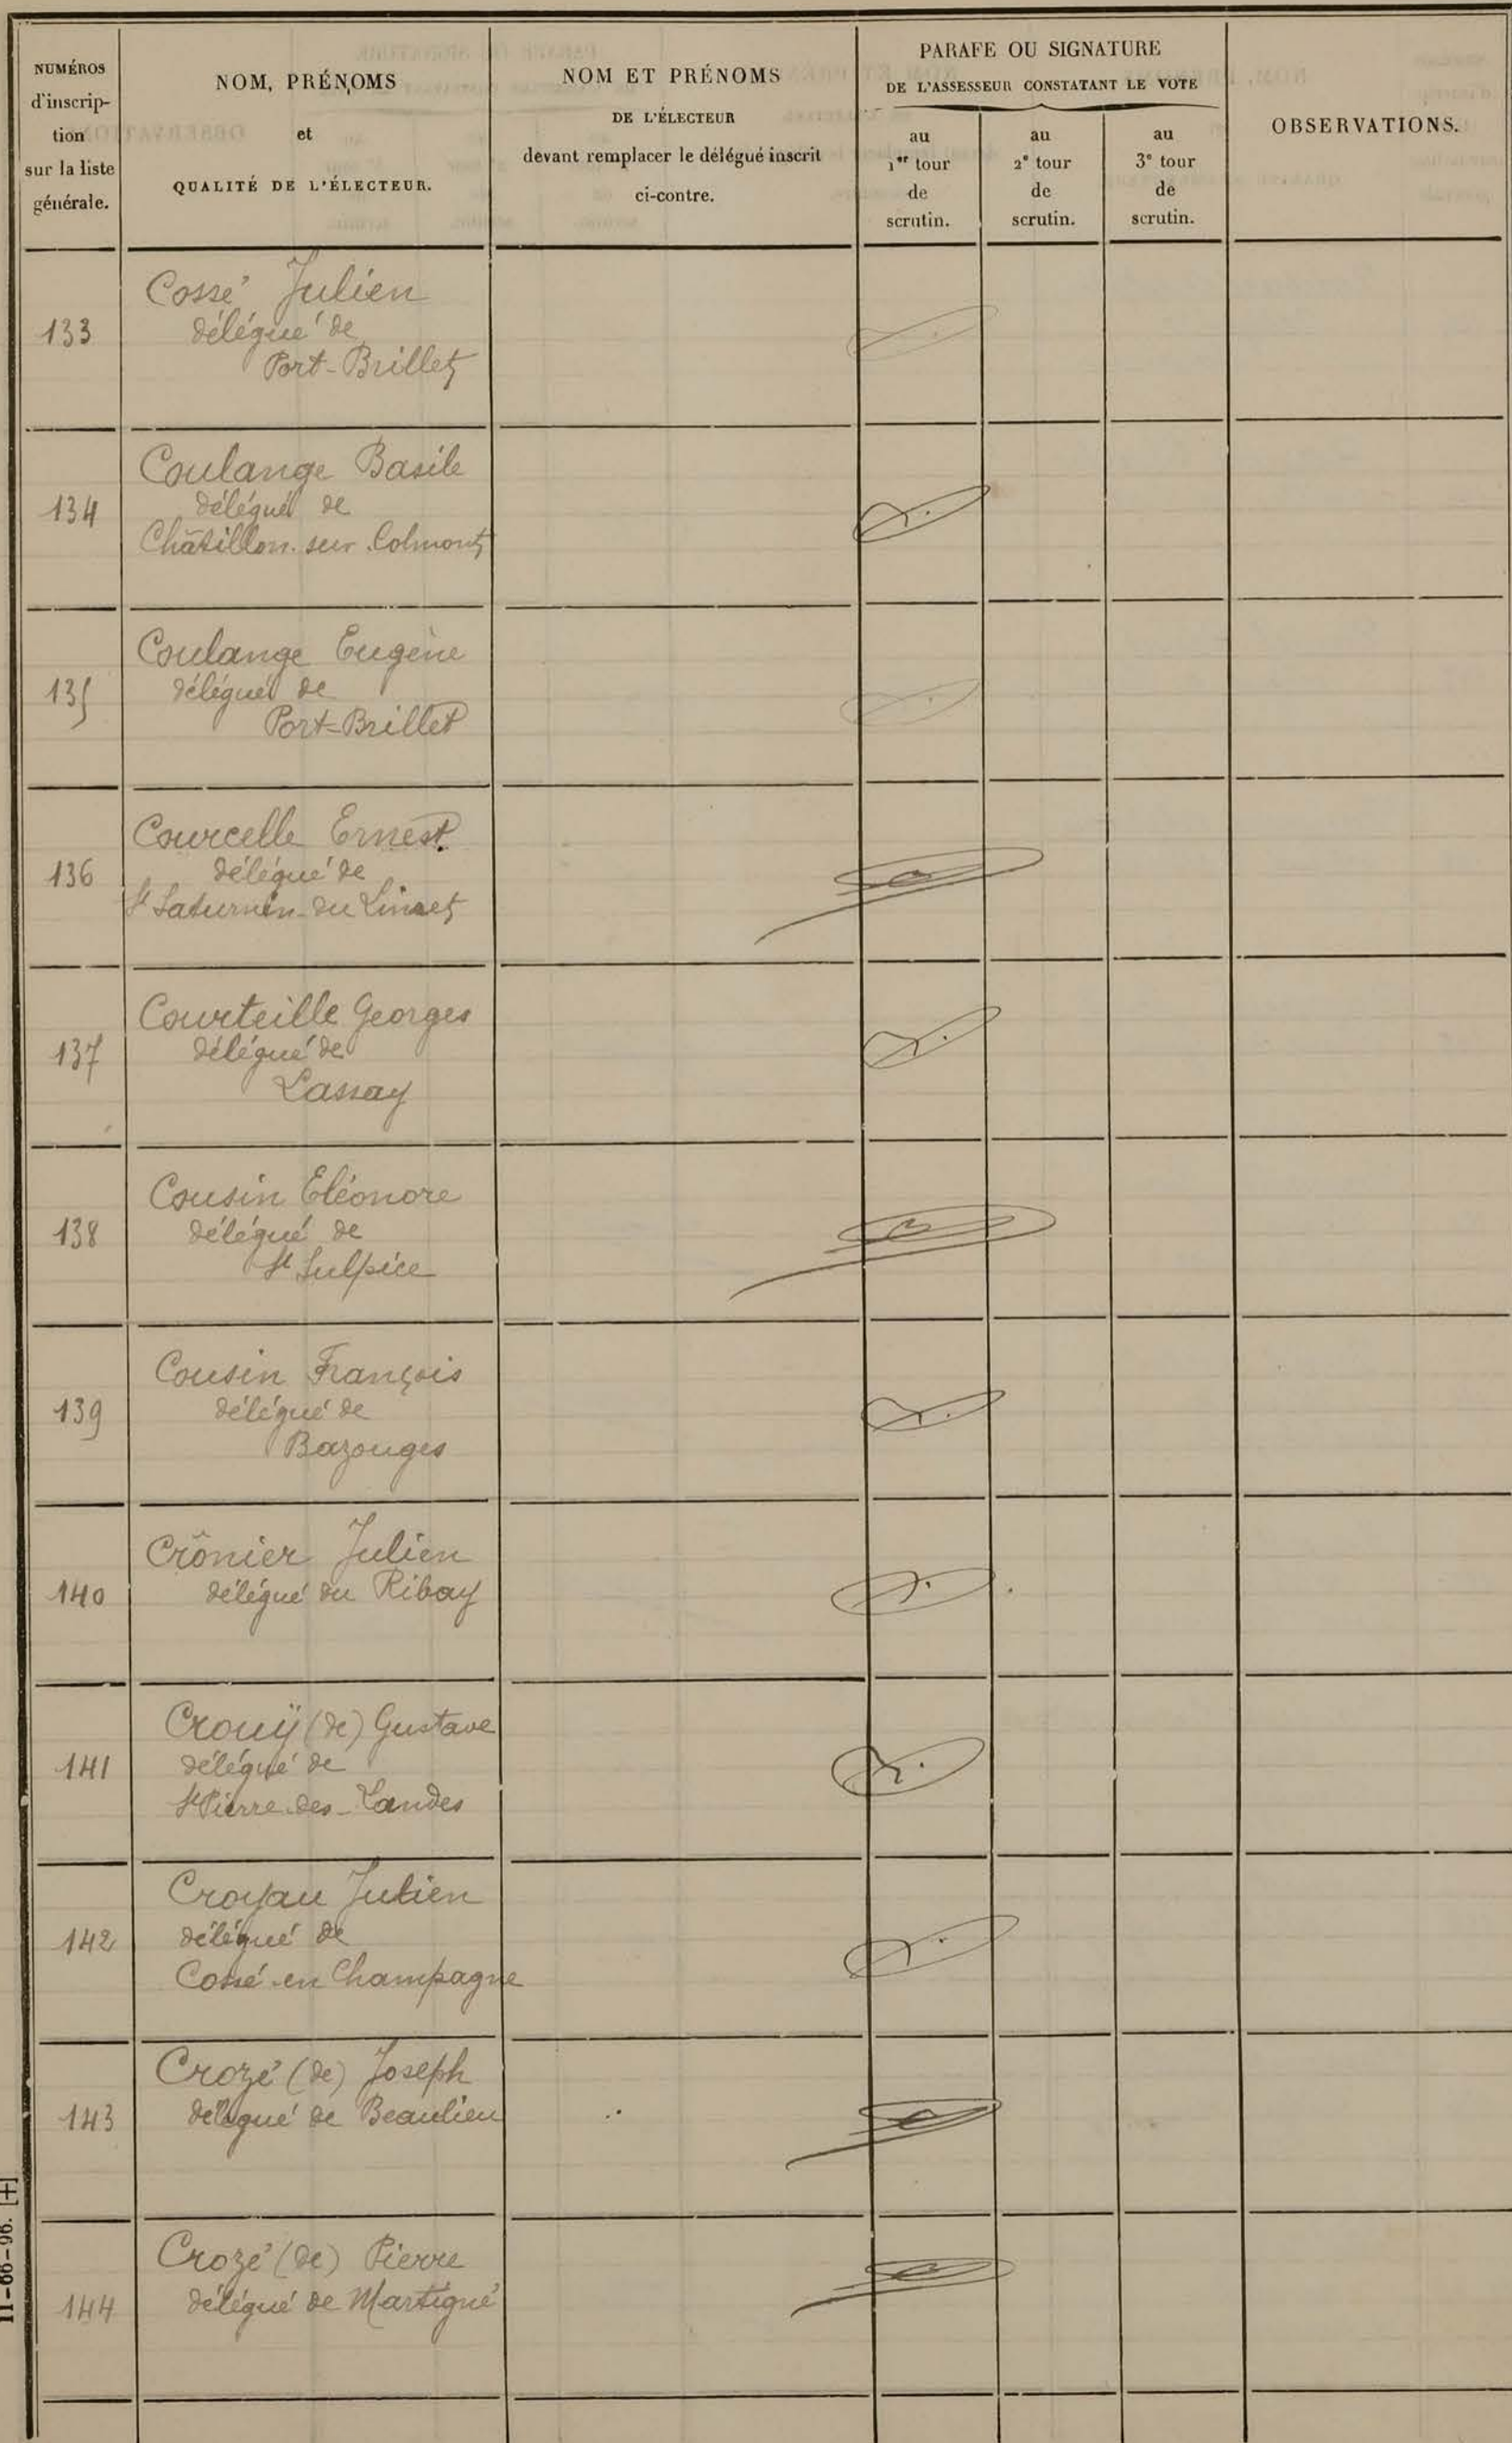 NUMÉROS
d'inscrip-
tion
sur la liste
générale.
NOM, PRÉNOMS
et
QUALITÉ DE L'ÉLECTEUR.
NOM ET PRÉNOMS
DE L'ÉLECTEUR
devant remplacer le délégué inscrit
ci-contre.
PARAFE OU SIGNATURE
DE L'ASSESSEUR CONSTATANT LE VOTE
au
1er tour
de
scrutin.
au
2e tour
de
scrutin.
au
3e tour
de
scrutin.
OBSERVATIONS.
133
Cossé Julien
délégué de
Port-Brillet
134
Coulange Basile
délégué de
Châtillon-sur-Colmont
135
Coulange Eugène
délégué de
Port-Brillet
136
Courcelle Ernest
délégué de
St Saturnin-du-Limet
137
Courteille Georges
délégué de
Lassay
138
Cousin Eléonore
délégué de
St Sulpice
139
Cousin François
délégué de
Bazouges
140
Crônier Julien
délégué du Ribay
141
Crouÿ (de) Gustave
délégué de
St Pierre-des-Landes
142
Croyau Julien
délégué de
Cossé-en-Champagne
143
Crozé (de) Joseph
délégué de Beaulieu
144
Crozé (de) Pierre
délégué de Martigné
11-66-96. [+]